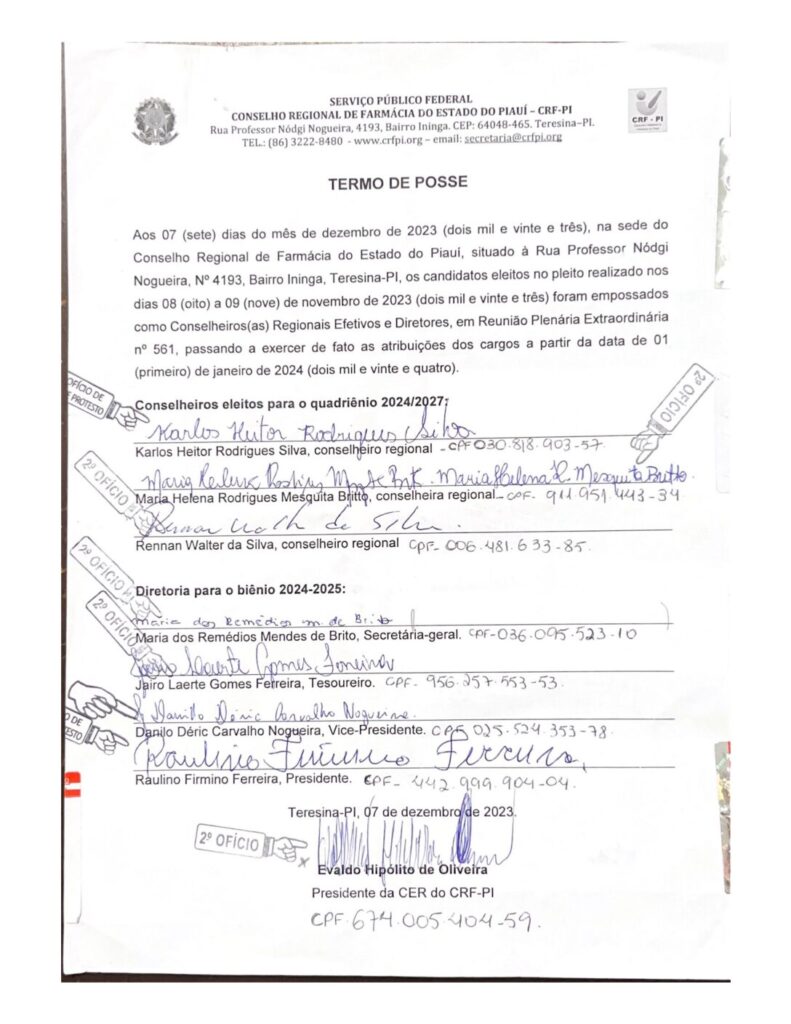 SERVIÇO PÚBLICO FEDERAL
CONSELHO REGIONAL DE FARMÁCIA DO ESTADO DO PIAUÍ – CRF-PI
Rua Professor Nódgi Nogueira, 4193, Bairro Ininga. CEP: 64048-465. Teresina–PI.
TEL.: (86) 3222-8480 - www.crfpi.org – email: secretaria@crfpi.org
CRF - PI
TERMO DE POSSE
Aos 07 (sete) dias do mês de dezembro de 2023 (dois mil e vinte e três), na sede do
Conselho Regional de Farmácia do Estado do Piauí, situado à Rua Professor Nódgi
Nogueira, Nº 4193, Bairro Ininga, Teresina-PI, os candidatos eleitos no pleito realizado nos
dias 08 (oito) a 09 (nove) de novembro de 2023 (dois mil e vinte e três) foram empossados
como Conselheiros(as) Regionais Efetivos e Diretores, em Reunião Plenária Extraordinária
nº 561, passando a exercer de fato as atribuições dos cargos a partir da data de 01
(primeiro) de janeiro de 2024 (dois mil e vinte e quatro).
OFÍCIO DE
PROTESTO
2º OFÍCIO
Conselheiros eleitos para o quadriênio 2024/2027:
Karlos Heitor Rodrigues Silva
Karlos Heitor Rodrigues Silva, conselheiro regional - CPF 030.818.903-57
2º OFÍCIO
Maria Helena R. Mesquita Britto
Maria Helena Rodrigues Mesquita Britto, conselheira regional - CPF- 911 951.443-34
Rennan Walter da Silva
Rennan Walter da Silva, conselheiro regional CPF- 006.481.633-85.
2º OFÍCIO
Diretoria para o biênio 2024-2025:
2º OFÍCIO
Maria dos Remédios M. de Brito
Maria dos Remédios Mendes de Brito, Secretária-geral. CPF-036.095.523-10
Jairo Laerte Gomes Ferreira
Jairo Laerte Gomes Ferreira, Tesoureiro. CPF- 956.257.553-53.
Danilo Déric Carvalho Nogueira
Danilo Déric Carvalho Nogueira, Vice-Presidente. CPF 025.524.353-78.
Raulino Firmino Ferreira
Raulino Firmino Ferreira, Presidente. CPF- 442.999.904-04.
Teresina-PI, 07 de dezembro de 2023.
2º OFÍCIO
Evaldo Hipólito de Oliveira
Presidente da CER do CRF-PI
CPF.674.005.404-59.